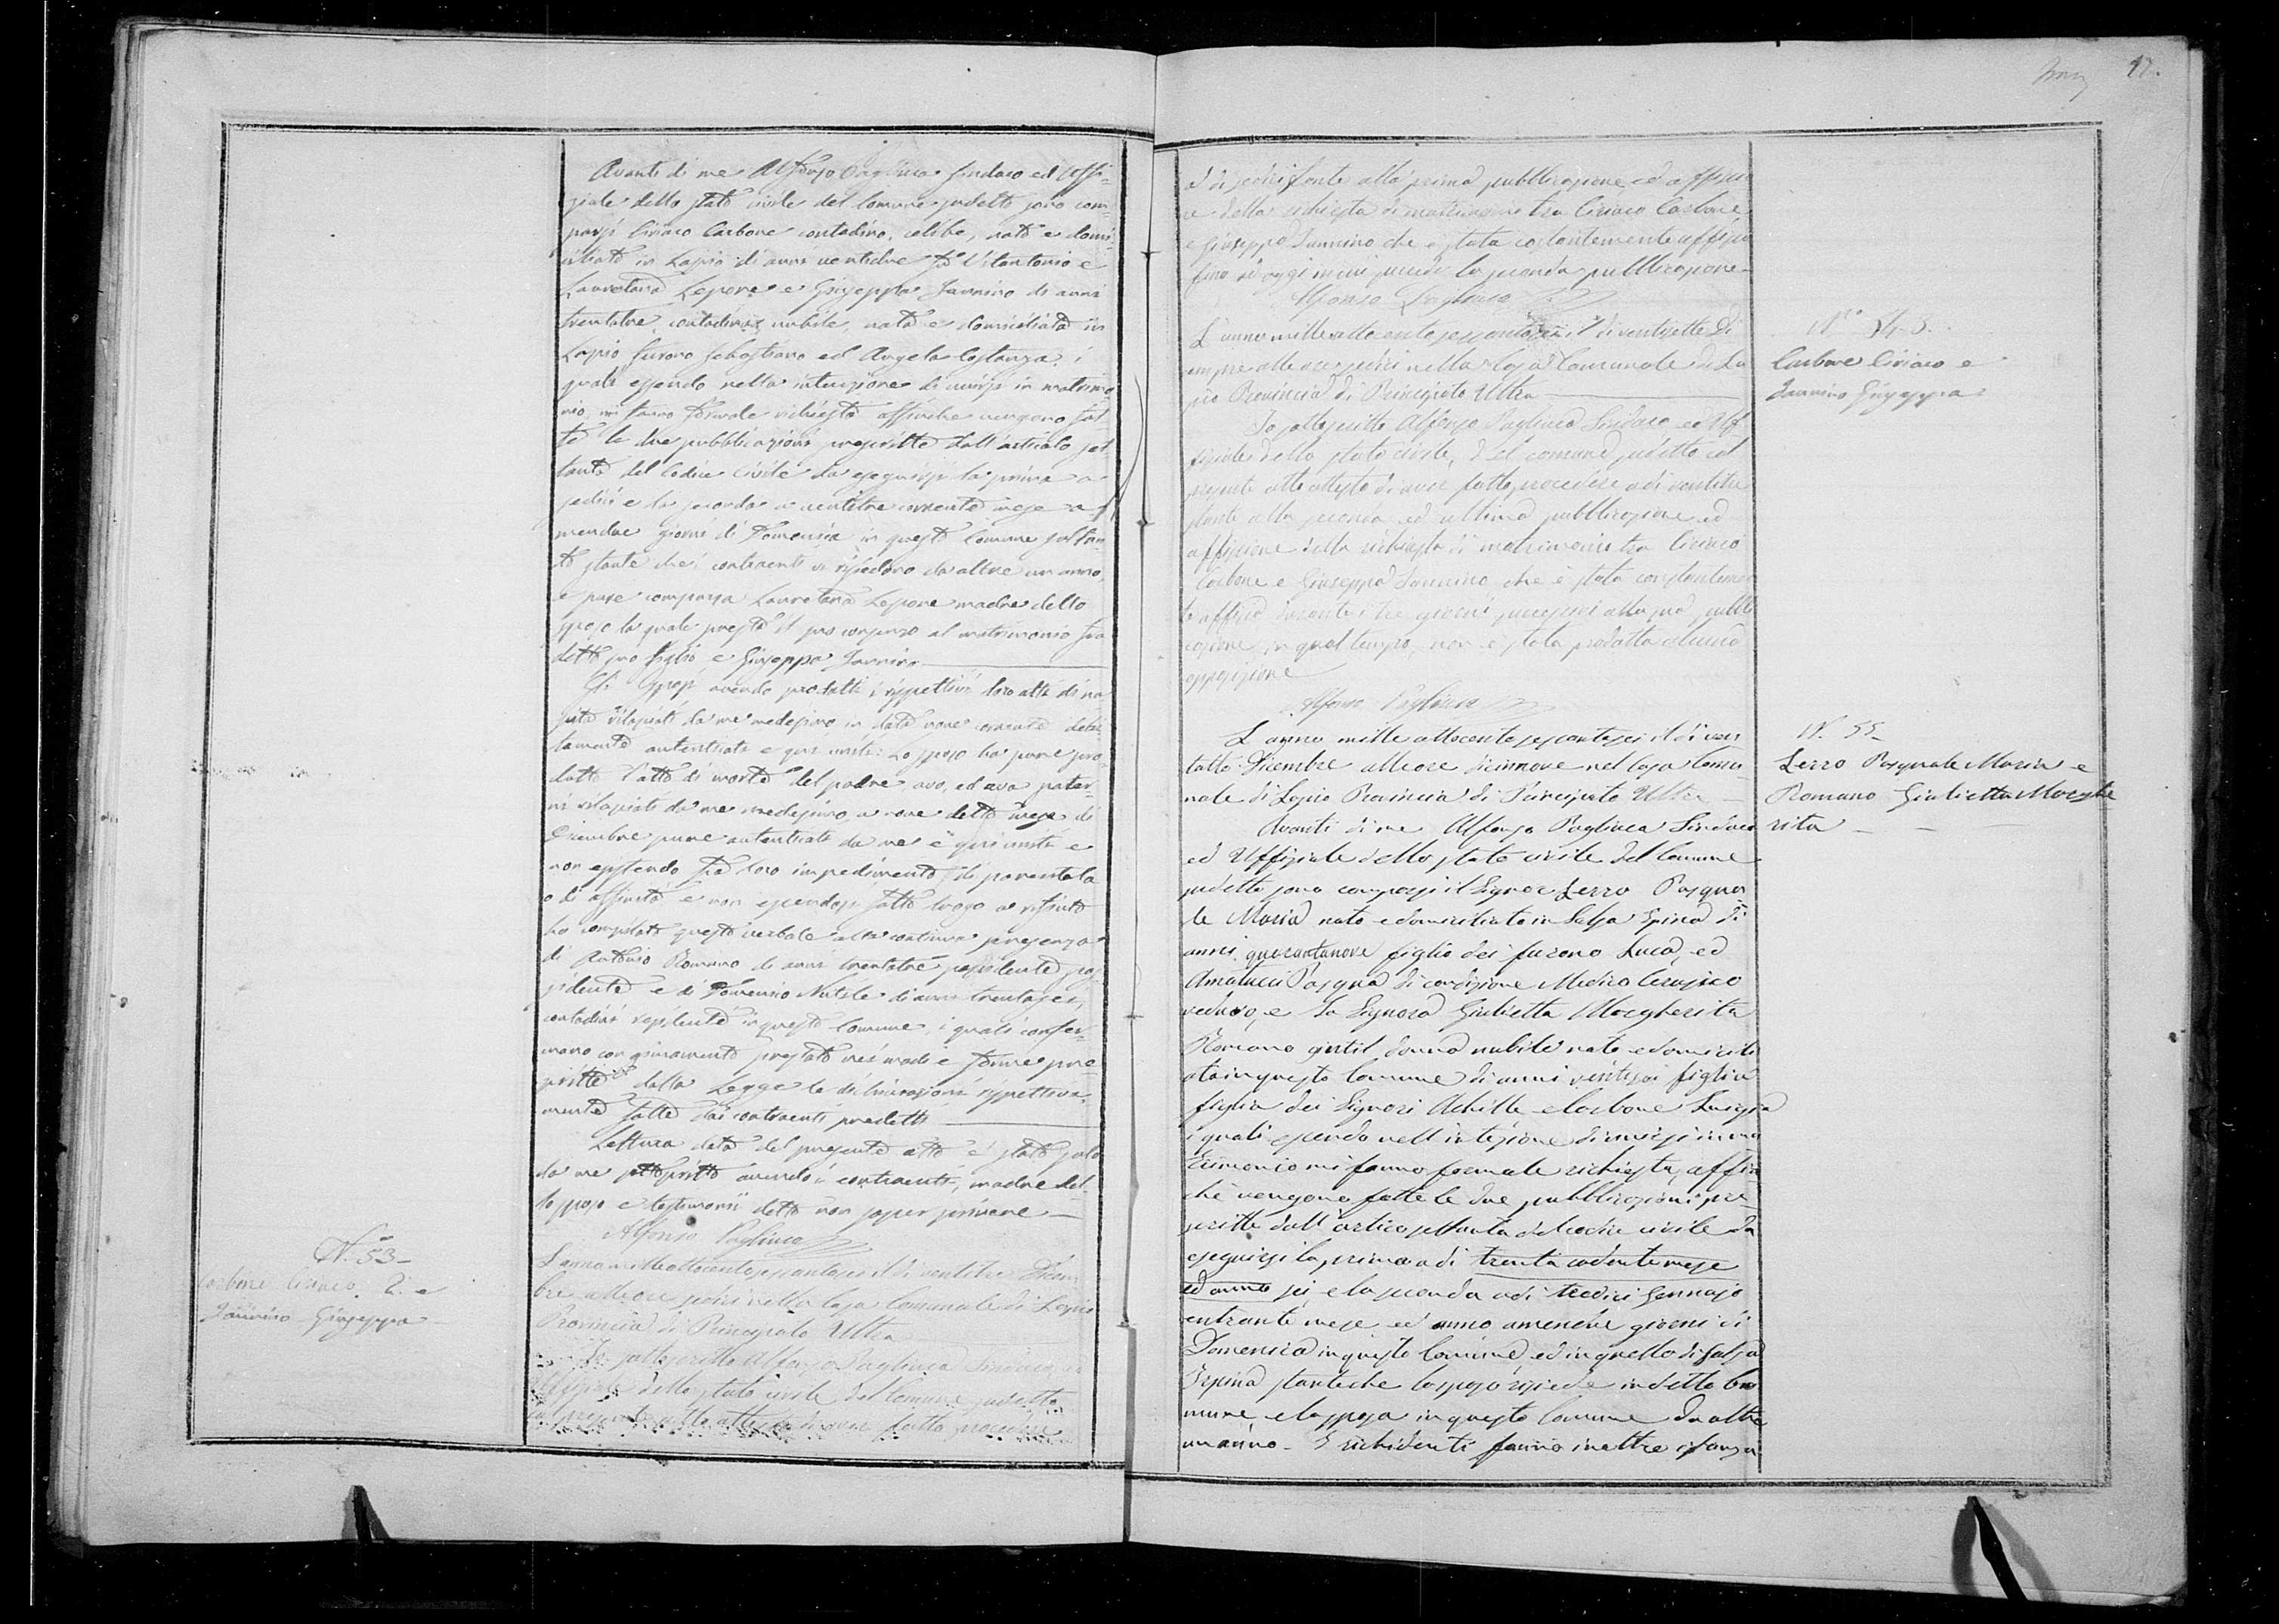 Avanti di me Alfonso Pagliuca Sindaco ed Uffi-
ziale dello stato civile del Comune sudetto sono com-
parsi Ciriaco Carbone contadino, celibe, nato e domi-
ciliato in Lapio di anni ventidue fu Vitantonio e
Lauretana Lepore e Giuseppa Iannino di anni
trentatre, contadina, nubile, nata e domiciliata in
Lapio furono Sebastiano ed Angela Costanza, i
quali essendo nella intenzione di unirsi in matrimo
nio, mi fanno formale richiesta affinche vengono fat
te le due pubblicazioni prescritte dall'articolo set
tanta del Codice Civile da eseguirsi la prima a
sedici e la seconda a ventitre corrente mese a
mendue giorni di Domenica in questo Comune soltan
to stante che i contraenti vi risiedono da oltre un anno,
e pure comparsa Lauretana Lepore madre dello
sposo la quale presta il suo consenso al matrimonio fra
detto suo figlio e Giuseppa Iannino
Gli sposi avendo prodotti i rispettivi loro atti di na
scita rilasciati da me medesimo in data nove corrente debi-
tamente autenticati e qui uniti: Lo sposo ha pure pro
dotto l'atto di morte del padre avo, ed ava pater-
ni rilasciati da me medesimo a nove detto mese di
Dicembre pure autenticati da me e qui uniti e
non esistendo fra loro impedimento di parentela
o di affinità e non essendosi fatto luogo a rifiuto
ho compilato questo verbale alla continua presenza
di Antonio Romano di anni trentatre possidente pos
sidente e di Domenico Natale di anni trentasei,
contadini residenti in questo Comune, i quali confer-
mano con giuramento prestato nei modi e forme pre-
scritte dalla Legge le dichiarazioni rispettiva-
mente fatte dai contraenti predetti
Lettura data del presente atto è stato solo
da me sottoscritto avendo i contraenti, madre del-
lo sposo e testimonii detto non saper scrivere
Alfonso Pagliuca
N.° 53
Carbone Ciriaco e
Iannino Giuseppa
L'anno milleottocentosessantasei il dì ventitre Dicem
bre alle ore sedici nella Casa Comunale di Lapio
Provincia di Principato Ultra
Io sottoscritto Alfonso Pagliuca Sindaco ed
Uffiziale dello stato civile del Comune sudetto
col presente atto attesto di aver fatto procedere
12.
a dì sedici stante alla prima pubblicazione ed affissio
ne della richiesta di matrimonio tra Ciriaco Carbone
e Giuseppa Iannino che è stata costantemente affissa
fino ad oggi in cui succede la seconda pubblicazione
Alfonso Pagliuca
N.° 54
Carbone Ciriaco e
Iannino Giuseppa
L'anno milleottocentosessantasei il dì ventisette Di
cembre alle ore sedici nella Casa Comunale di La
pio Provincia di Principato Ultra
Io sottoscritto Alfonso Pagliuca Sindaco ed Uf
fiziale dello stato civile, del comune sudetto col
presente atto attesto di aver fatto procedere a dì ventitre
stante alla seconda ed ultima pubblicazione ed
affissione della richiesta di matrimonio tra Ciriaco
Carbone e Giuseppa Iannino che è stata constantemen
te affissa durante i tre giorni successivi alla sua pubbli
cazione, in qual tempo, non è stata prodotta alcuna
opposizione
Alfonso Pagliuca
N. 55
Serro Pasquale Maria e
Romano Giulietta Marghe
rita
L'anno mille ottocento sessantasei il dì ven
totto Dicembre alle ore diciannove nel Casa Comu
nale di Lapio Provincia di Principato Ultra
Avanti di me Alfonso Pagliuca Sindaco
ed Uffiziale dello stato civile del Comune
sudetto sono comparsi il Signor Serro Pasqua
le Maria nato e domiciliato in Salsa Irpina di
anni quarantanove figlio dei furono Luca, ed
Amatucci Pasqua di condizione Medico Cerusico
vedovo, e La Signora Giulietta Margherita
Romano gentil donna nubile nata e domicili
ata in questo Comune di anni ventisei figlia
figlia dei Signori Achille e Carbone Luigia
i quali essendo nell'intezione di unirsi in ma
trimonio mi fanno formale richiesta, affin
chè vengano fatte le due pubblicazioni pre
scritte dall'artico settanta del codice civile da
eseguirsi la prima a dì trenta cadente mese
ed anno sei, e la seconda a dì tredici Gennajo
entrante mese ed anno amendue giorni di
Domenica in questo Comune ed in quello di Salsa
Irpina stanteche lo sposo risiede in detto Co
mune, e la sposa in questo Comune da oltre
un anno. I richidenti fanno inoltre istanza